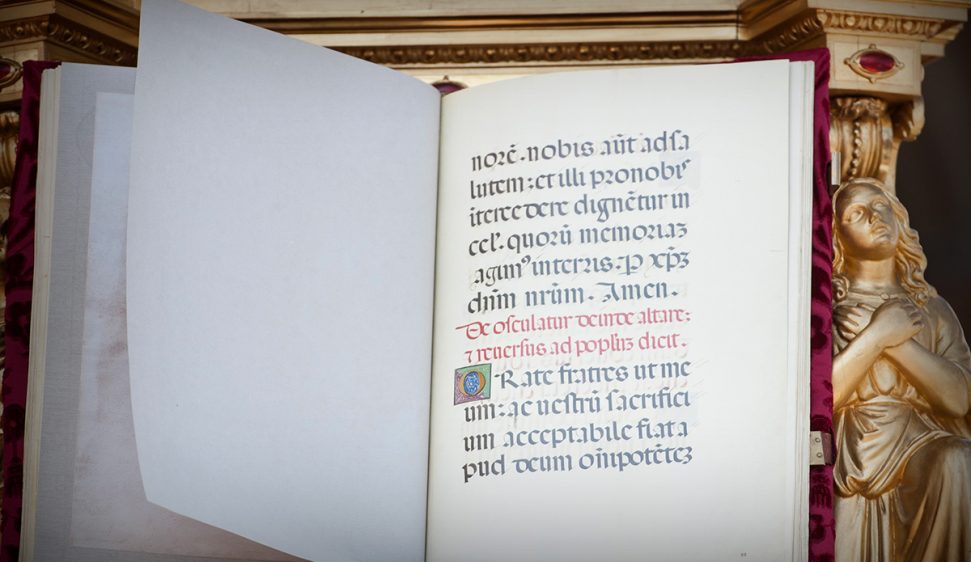 norẽ. nobis aũt ad sa
lutem: et illi pro nobiſ
itercedere dignẽtur in
cel'. quorũ memoriaʒ
agimꝰ in terris. P xp̃ʒ
dñm nrũm. Amen.
De osculatur deinde altare:
⁊ reuersus ad poplũʒ dicit.
ORate fratres ut me
um: ac ueſtrũ ſacrifici
um acceptabile fiat a
pud deum oĩnipotẽteʒ